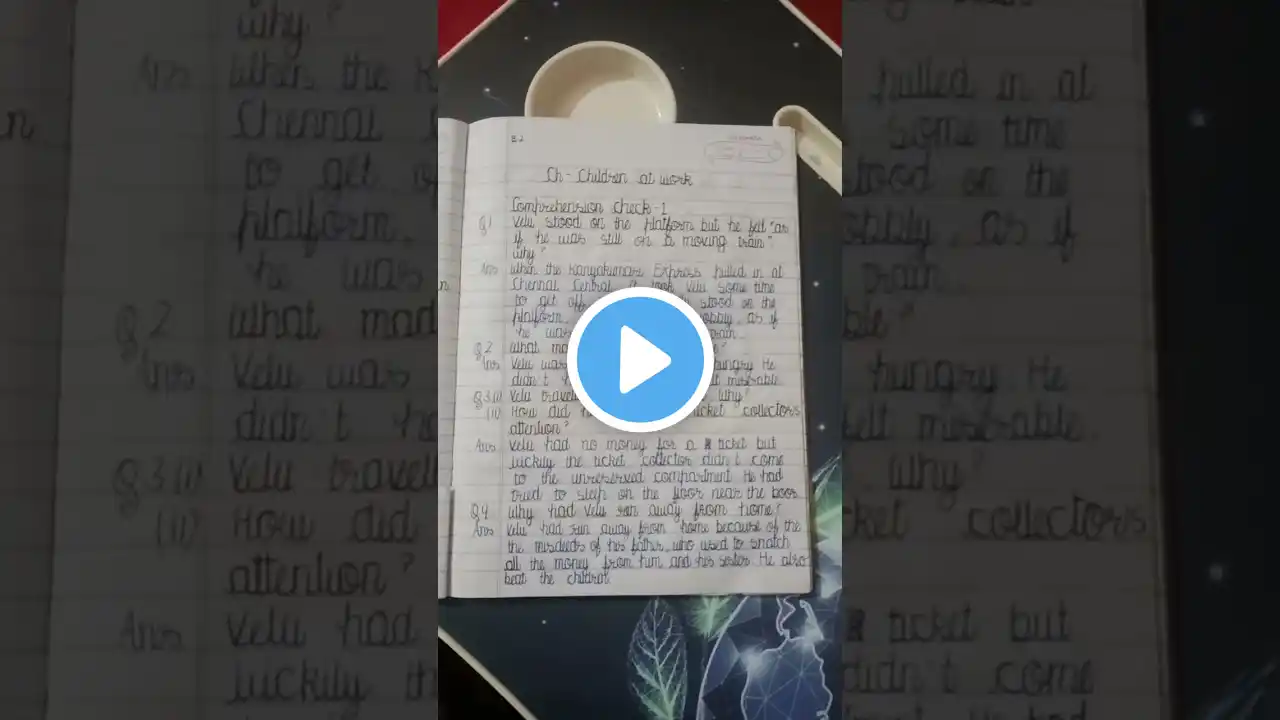 Ch - Children at work
Comprehension Check - 1
Q.1 Velu stood on the platform but he felt "as
if he was still on a moving train"
Why?
Ans When the Kanyakumari Express pulled in at
Chennai Central it took Velu some time
to get off stood on the
platform as if
he was
Q.2 What
Ans Velu was hungry He
didn't miserable
Q.3.(i) Velu Why?
(ii) How did ticket collectors
attention?
Ans Velu had no money for a ticket but
luckily the ticket collector didn't come
to the unreserved compartment He had
tried to sleep on the floor near the door
Q.4 Why had Velu run away from home?
Ans Velu had run away from home because of the
the misdeeds of his father who used to snatch
all the money from him and his sister. He also
beat the children